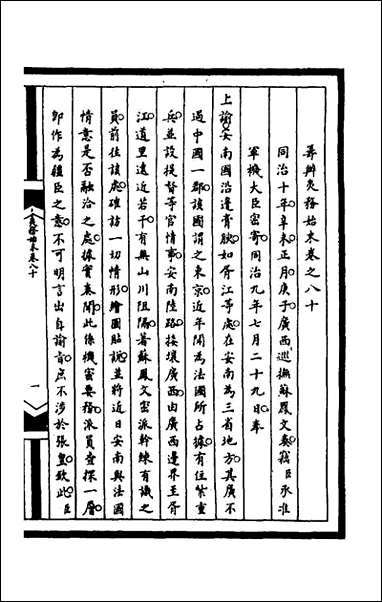 筹辦夷務始末卷之八十
同治十年辛未正月庚子廣西巡撫蘇鳳文奏竊臣承准
軍機大臣密寄同治九年七月二十九日奉
上諭安南國沿邊膏腴如胥江等處在安南為三省地方其廣不
過中國一郡該國謂之東京近年聞為法國所占據有住紮重
兵並設提督等官情事安南陸路接壤廣西由廣西邊界至胥
江道里遠近若干有無山川阻隔著蘇鳳文密派幹練有識之
員前往該處確訪一切情形繪圖貼說並將近日安南與法國
情意是否融洽之處據實奏聞此係機密要務派員查探一層
即作為疆臣之意不可明言出自諭旨庶不涉於張皇欽此臣
夷務始末卷八十
一